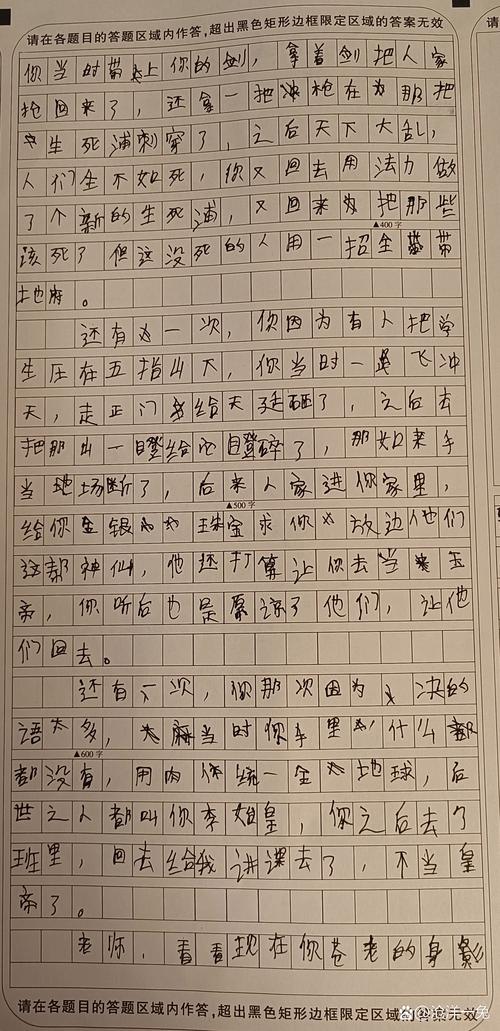 请在各题目的答题区域内作答，超出黑色矩形边框限定区域的答案无效
你当时带上你的剑，拿着剑把人家
抢回来了，还拿一把枪在为那把
生死浦刺穿了，之后天下大乱，
人们全不如死，你又回去用法力做
了个新的生死浦，又回来为把那些
▲400字
该死了但这没死的人用一招全带
地府。
还有一次，你因为有人把学
生压在五指山下，你当时一飞冲
天，走正门给天廷砸了，之后去
把那山一瞪给它瞪碎了，那如来手
当地场断了，后来人家进你家里，
▲500字
给你金银珠宝求你放边他们
这帮神仙，他还打算让你去当玉
帝，你听后也是原谅了他们，让他
们回去。
还有一次，你那次因为决的
语太多，当时你手里什么都
▲600字
都没有，用肉体统一全地球，后
世之人都叫你李始皇，你之后去了
班里，回去给我讲课去了，不当皇
帝了。
老师，看看现在你苍老的身影
请在各题目的答题区域内作答，超出黑色矩形边框限定区域的答案无效